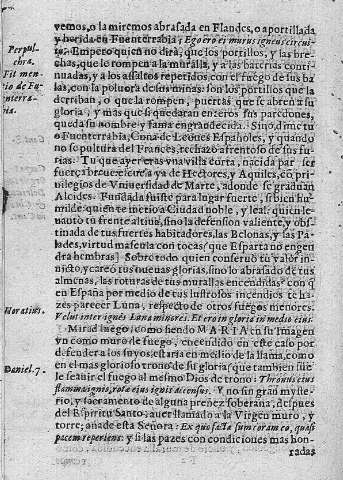 vemos, o la miremos abrasada en Flandes, o aportillada
y herida en Fuenterrabia; Ego ero ei murus igneus circui-
tu. Empero quien no dirà, que los portillos, y las bre-
chas, que le rompen a la muralla, y a las baterias conti-
nuadas, y a los assaltos repetidos, con el fuego de sus ba
las, con la poluora de sus minas: son los portillos que la
derriban, o que la rompen, puertas que se abren a su
gloria; y mas que si quedaran enteros sus paredones,
queda su nombre y fama engrandecida. Sino, dime tu
o Fuenterrabia, Cuna de Leones Españoles, y quando
no sepultura del Frances, rechaço afrentoso de sus fu-
rias: Tu que ayer eras vna villa corta, nacida par ser
fuerça, breue escuela ya de Hectores, y Aquiles, cõ pri-
uilegios de Vniuersidad de Marte, adonde se graduan
Alcides. Fundada fuiste para lugar fuerte, si bien hu-
milde: quien te metio a Ciudad noble, y leal: quien le-
uantò tu frente altiua, sino la defension valiente, y obs-
tinada de tus fuertes habitadores, las Belonas, y las Pa-
lades, virtud masculina con tocas (que Esparta no engen
dra hembras) Sobre todo quien conseruò tu valor in-
uicto, y careò tus nueuas glorias, sino lo abrasado de tus
almenas, las roturas de tus murallas encendidas? con q̃
en España por medio de tus lustrosos incendios te ha-
zes parecer Luna, respecto de otros fuegos menores.
Velut inter ignes Luna minores. Et ero in gloria in medio eius.
Mirad luego, como siendo MARIA en su Imagen
vn como muro de fuego, encendido en este caso por
defender a los suyos, estaria en medio de la llama, como
en el mas glorioso trono de su gloria (que tambien sue
le seruir el fuego al mesmo Dios de trono: Thronus eius
flamma ignis, rotæ eius ignis accensus. Y no sin gran myste-
rio, y sacramento de alguna preñez soberana, despues
del Espiritu Santo, auer llamado a la Virgen muro, y
torre; añade esta Señora: Ex quo facta sum coram eo, quasi
pacem reperiens: y si las pazes con condiciones mas hon-
radas
Perpul-
chra.
Fit men-
tio de Fu-
enterra-
nia.
Horatius.
Daniel. 7.